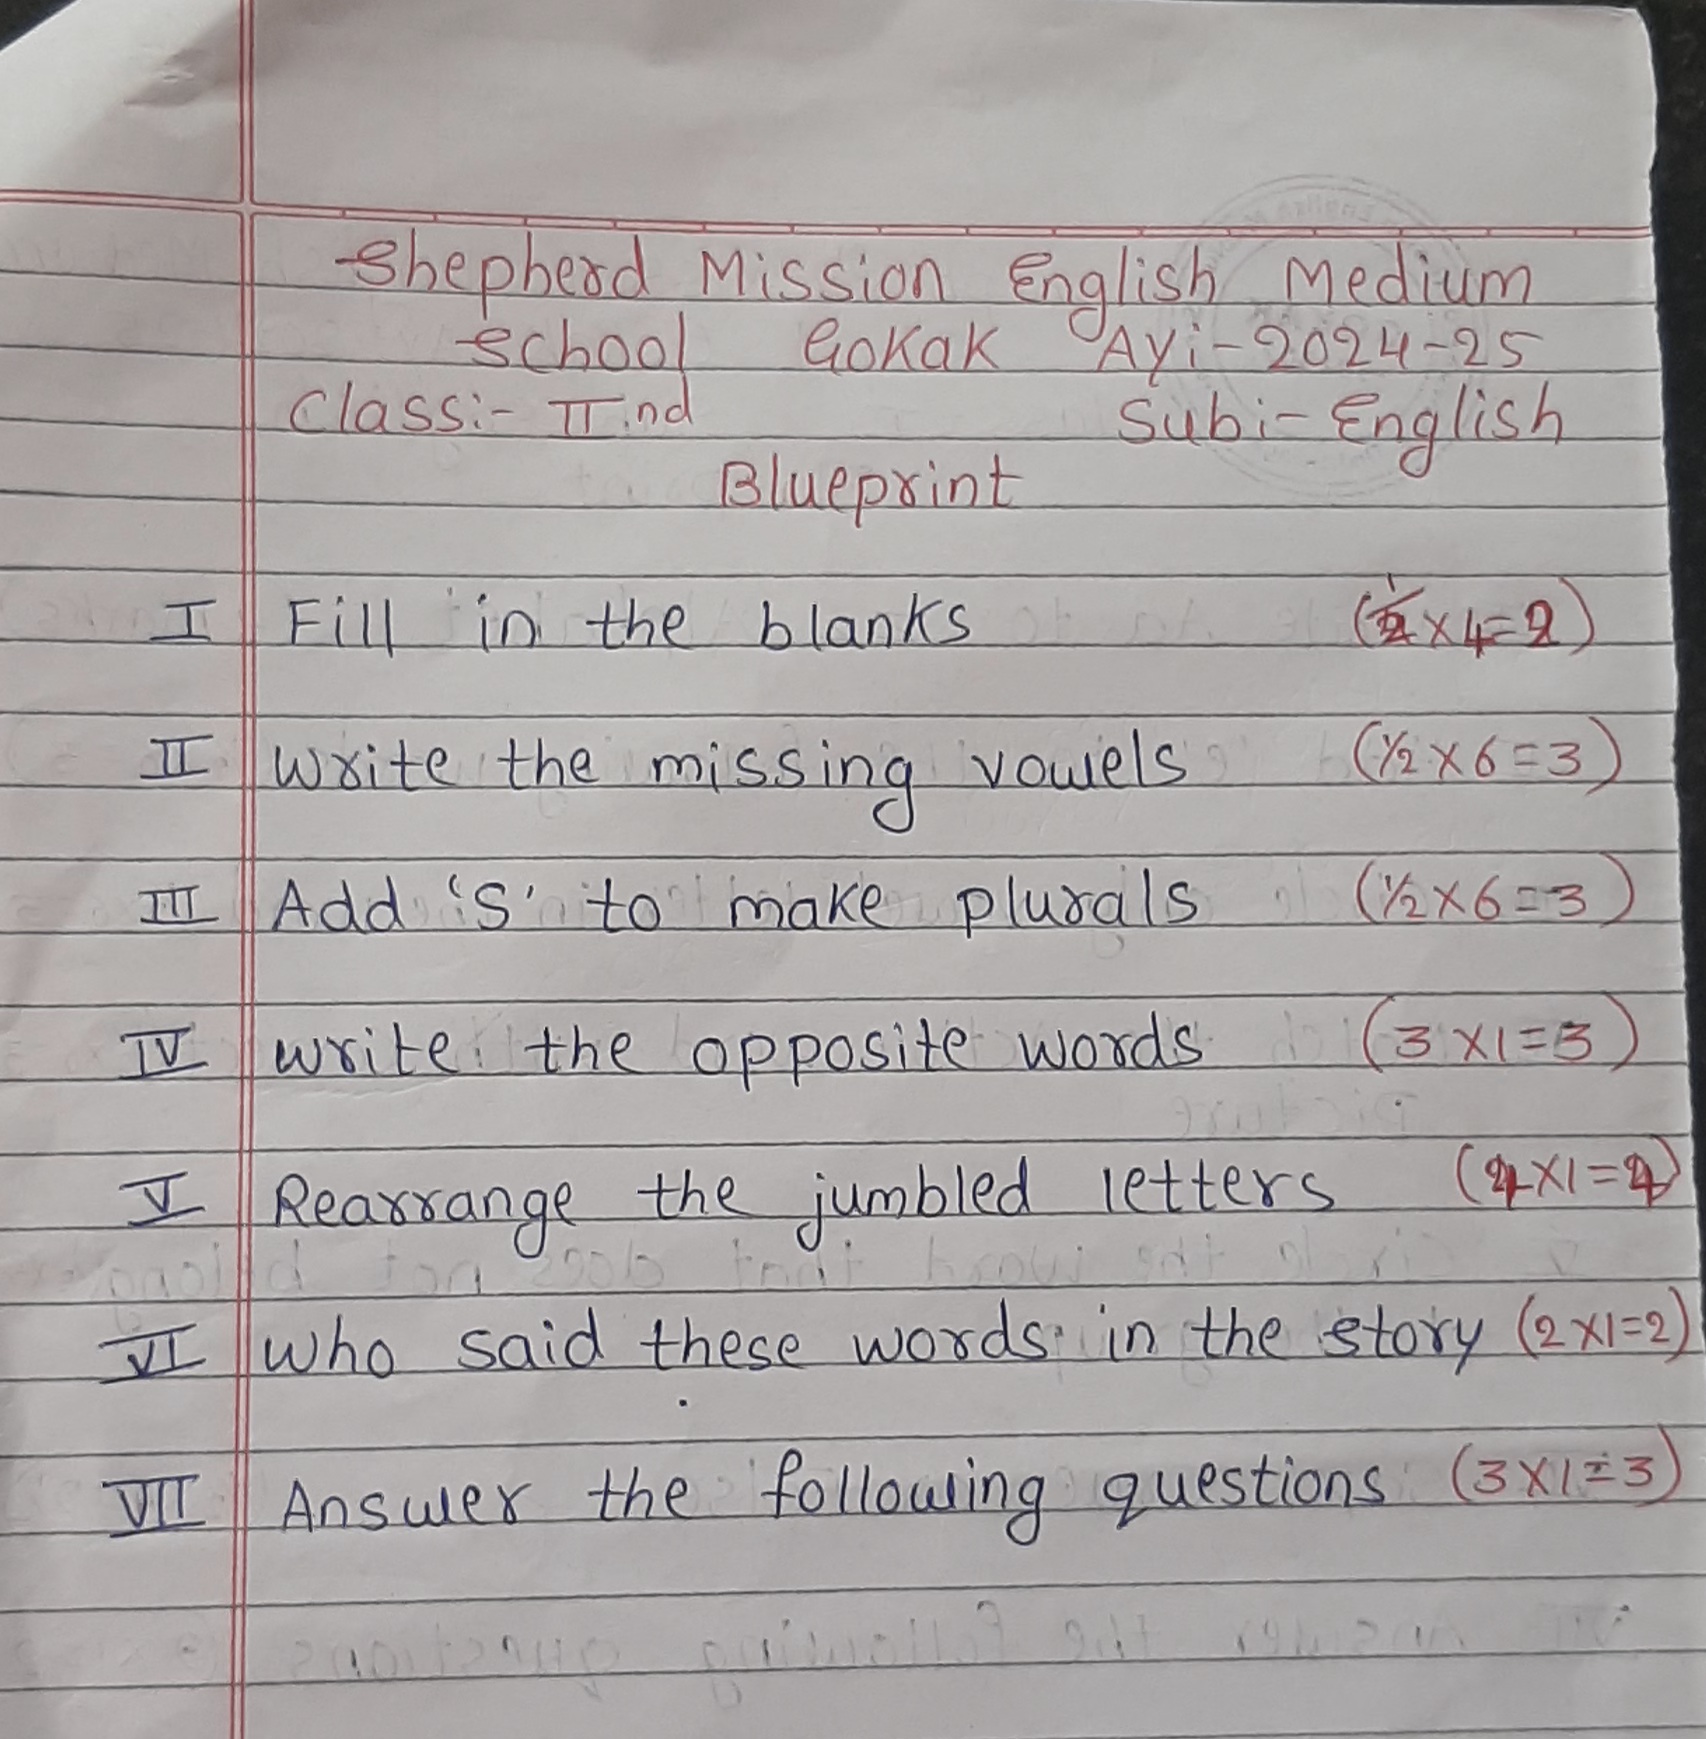 Shepherd Mission English Medium
School Gokak Ay:-2024-25
Class:- II nd Sub:- English
Blueprint
I Fill in the blanks (½ x 4=2)
II Write the missing vowels (½ x 6=3)
III Add 'S' to make plurals (½ x 6=3)
IV write the opposite words (3 x1=3)
V Rearrange the jumbled letters (4 x1=4)
VI who said these words in the story (2 x1=2)
VII Answer the following questions (3 x1=3)